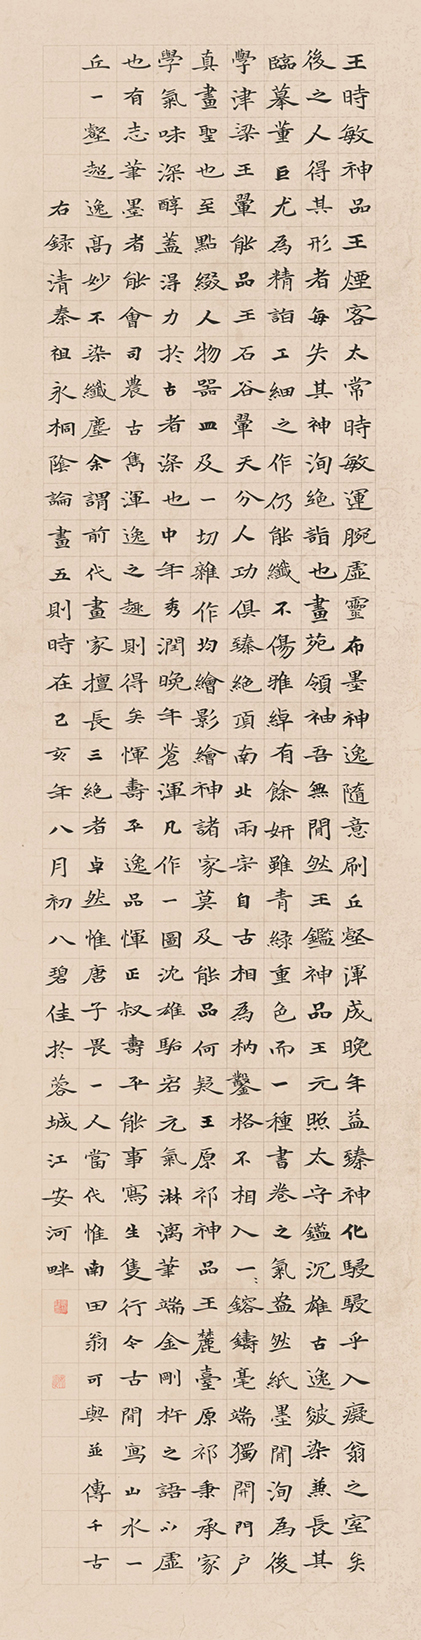 王時敏神品王煙客太常時敏運腕虛靈布墨神逸隨意刷丘壑渾成晚年益臻神化駸駸乎入癡翁之室矣
後之人得其形者每失其神洵絕詣也畫苑領袖吾無間然王鑑神品王元照太守鑑沉雄古逸皴染兼長其
臨摹董巨尤為精詣工細之作仍能纖不傷雅綽有餘妍雖青綠重色而一種書卷之氣盎然紙墨間洵為後
學津梁王翬能品王石谷翬天分人功俱臻絕頂南北兩宗自古相為枘鑿格不相入一一鎔鑄毫端獨開門戶
真畫聖也至點綴人物器皿及一切雜作均繪影繪神諸家莫及能品何疑王原祁神品王麓臺原祁秉承家
學氣味深醇蓋淂力於古者深也中年秀潤晚年蒼渾凡作一圖沈雄駘宕元氣淋漓筆端金剛杵之語以虛
也有志筆墨者能會司農古雋渾逸之趣則得矣惲壽平逸品惲正叔壽平能事寫生隻行令古間寫山水一
丘一壑超逸高妙不染纖塵余謂前代畫家擅長三絕者卓然惟唐子畏一人當代惟南田翁可與並傳千古
右錄清秦祖永桐陰論畫五則時在己亥年八月初八碧佳於蓉城江安河畔